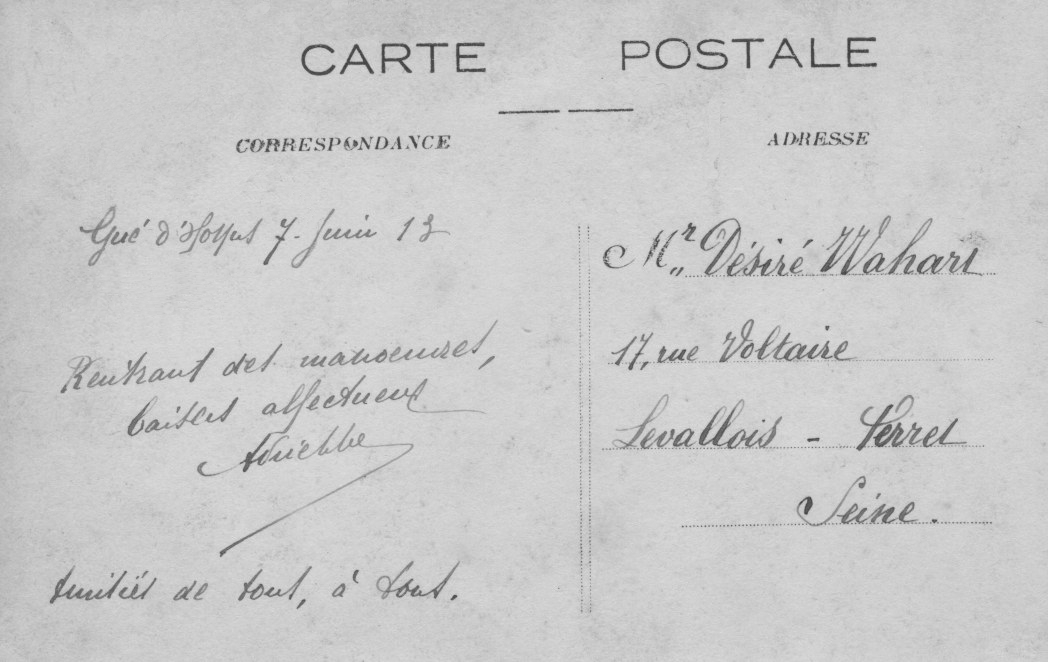 CARTE POSTALE
CORRESPONDANCE
ADRESSE
Gué d'Hossus 7 Juin 13
Rentrant des manoeuvres,
baisers affectueux
Amitiés de tous, à tous.
Mr Désiré Wahart
17, rue Voltaire
Levallois - Perret
Seine.